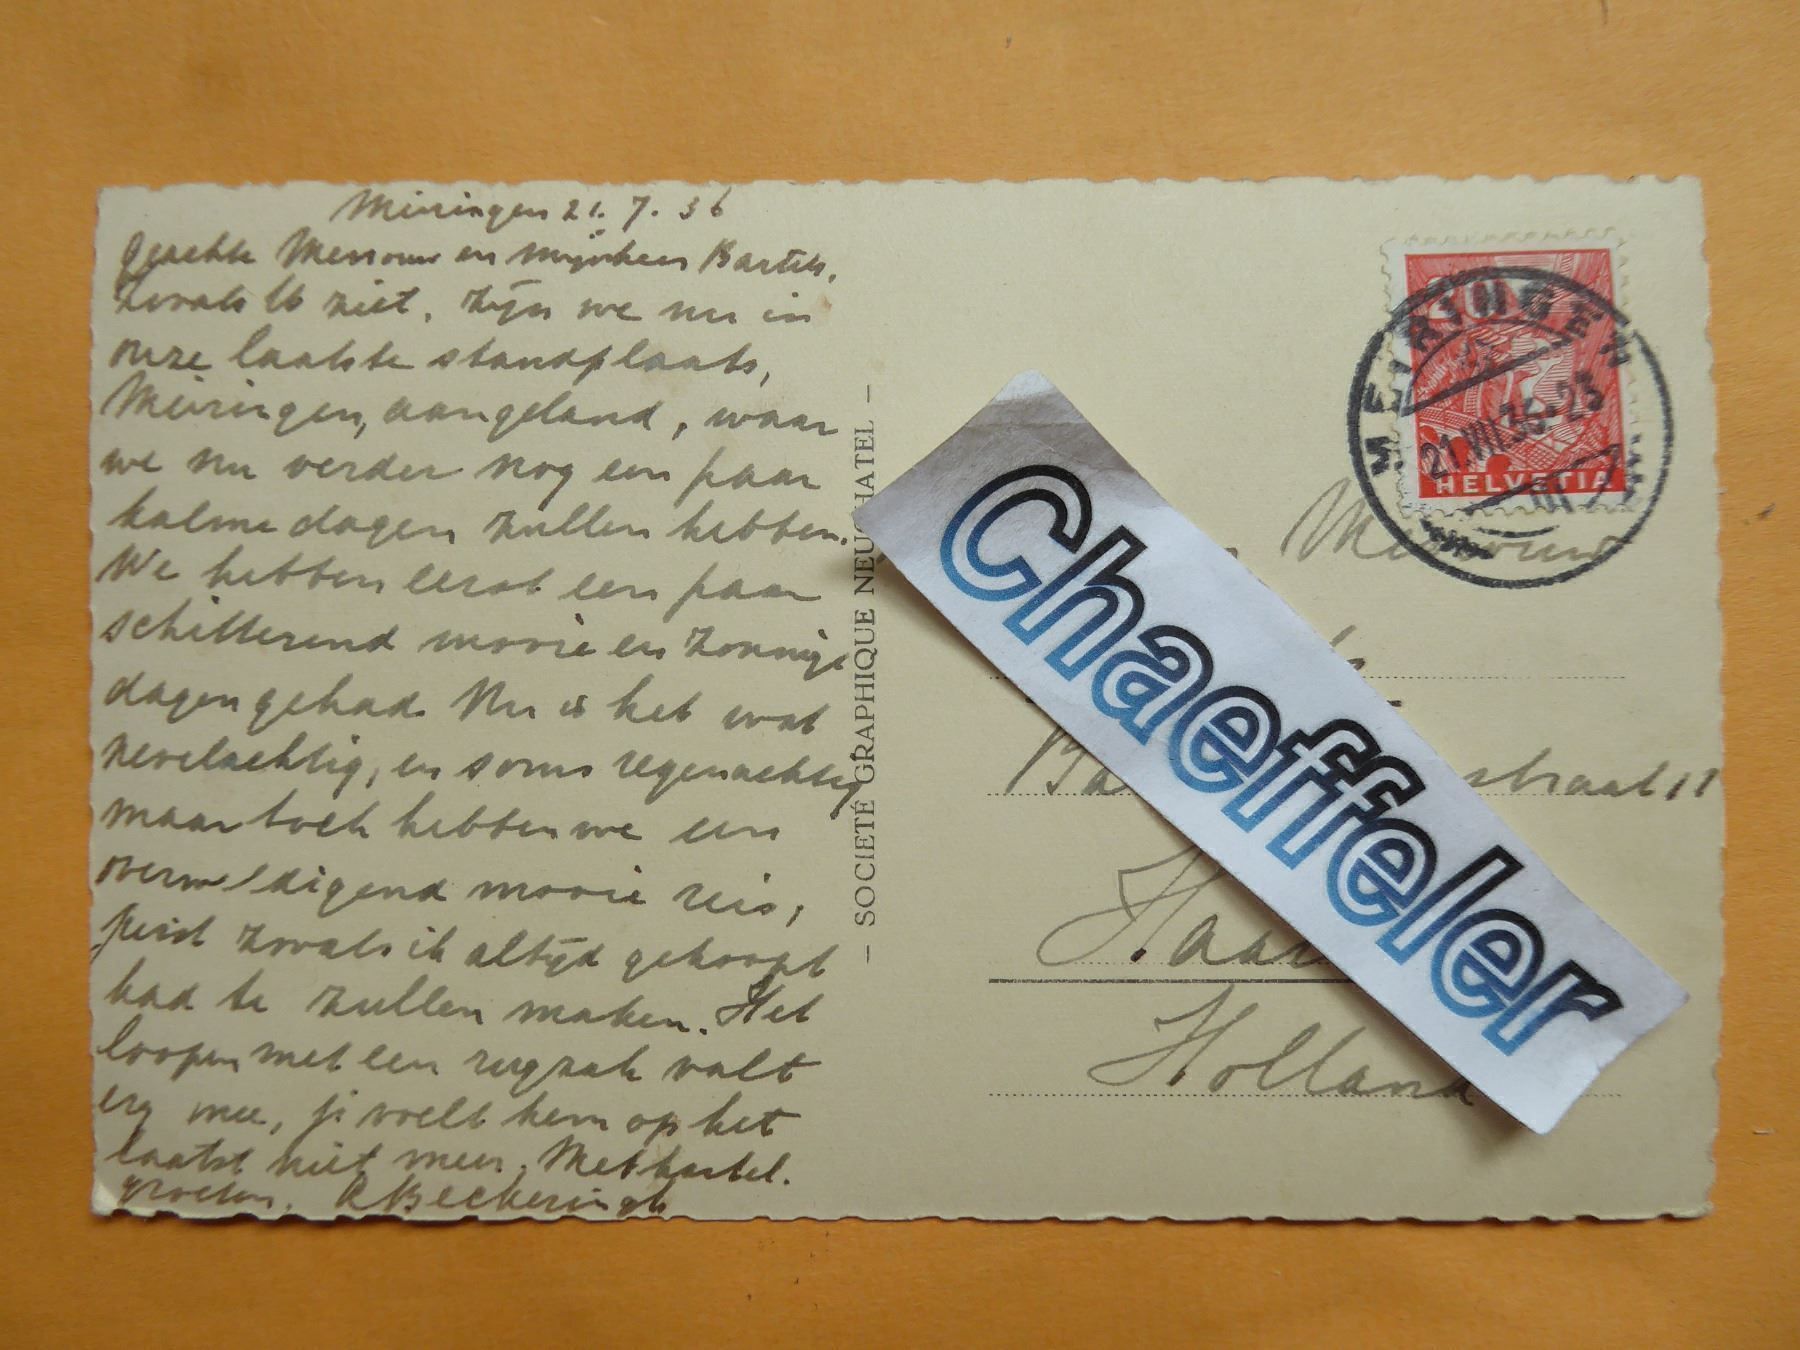 Meiringen 21. 7. 36
Geachte Mevrouw en mijnheer Bartels,
Zooals U ziet, zijn we nu in
onze laatste standplaats,
Meiringen, aangeland, waar
we nu verder nog een paar
kalme dagen zullen hebben.
We hebben eerst een paar
schitterend mooie en zonnige
dagen gehad. Nu is het wat
nevelachtig, en soms regenachtig
maar toch hebben we een
overweldigend mooie reis,
juist zooals ik altijd gehoopt
had te zullen maken. Het
loopen met een rugzak valt
erg mee, je voelt hem op het
laatst niet meer. Met hartel.
groeten, R Beckeringh
- SOCIETÉ GRAPHIQUE NEUCHATEL -
20
HELVETIA
MEIRINGEN
21.VII.36-23
Mevrouw
straat 11
Holland
Chaeffeler